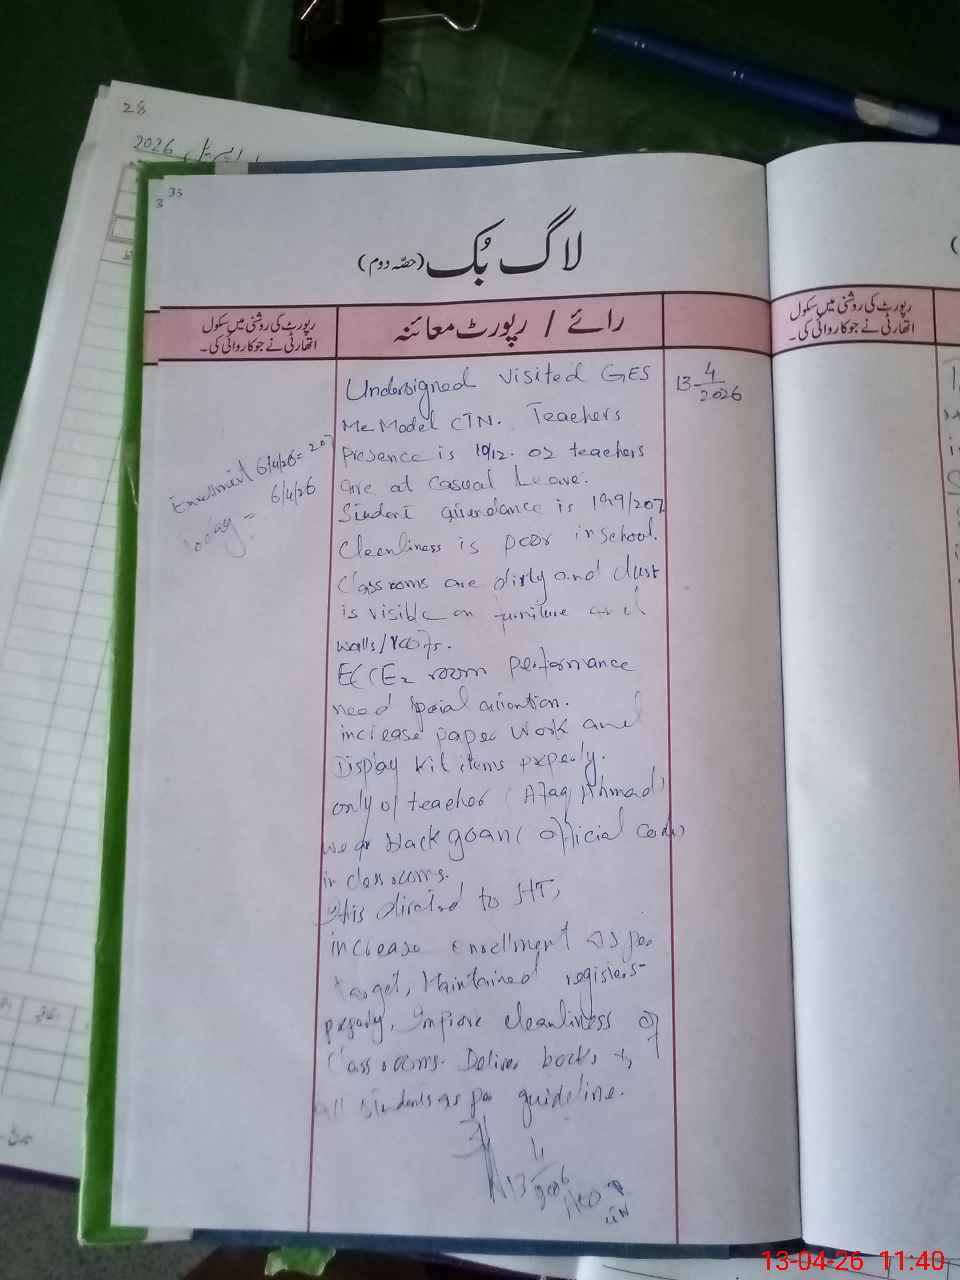 28
اپریل 2026
33
3
لاگ بُک (حصّہ دوم)
رپورٹ کی روشنی میں سکول
اتھارٹی نے جو کاروائی کی۔
رائے / رپورٹ معائنہ
رپورٹ کی روشنی میں سکول
اتھارٹی نے جو کاروائی کی۔
13-4/2026
Undersigned visited GES
Mc Model CTN. Teachers
Presence is 10/12. 02 teachers
are at Casual Leave.
Student attendance is 199/207
Cleanliness is poor in School.
Classrooms are dirty and dust
is visible on furniture and
walls/roofs.
ECCE room performance
need special attention.
increase paper work and
Display kit items properly.
only 01 teacher (Afaq Ahmad)
wear black goan (official
in classrooms.
It is directed to HT,
increase enrollment as per
target, Maintained registers
properly, Improve cleanliness of
Classrooms. Deliver books to
all students as per guideline.
13 4/2026
Enrollment 6/4/26 = 207
6/4/26
Today =
13-04-26 11:40